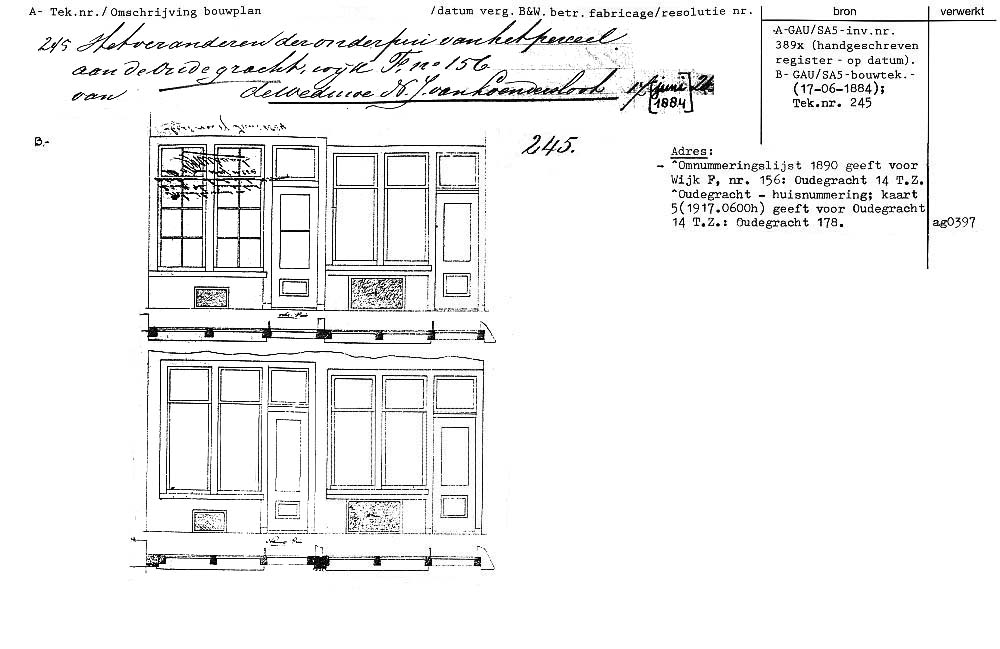 A- Tek.nr./ Omschrijving bouwplan /datum verg. B&W. betr. fabricage/resolutie nr. bron verwerkt
245 Het veranderen der onderpui van het perceel
aan de Oude gracht, wijk F, no 156
van de weduwe N. J. van Loendersloot 17 juni 24
[1884]
A-GAU/SA5-inv.nr.
389x (handgeschreven
register - op datum).
B- GAU/SA5-bouwtek.-
(17-06-1884);
Tek.nr. 245
B.-
245.
Adres:
- ^Omnummeringslijst 1890 geeft voor
Wijk F, nr. 156: Oudegracht 14 T.Z.
^Oudegracht - huisnummering; kaart
5(1917.0600h) geeft voor Oudegracht
14 T.Z.: Oudegracht 178. ag0397